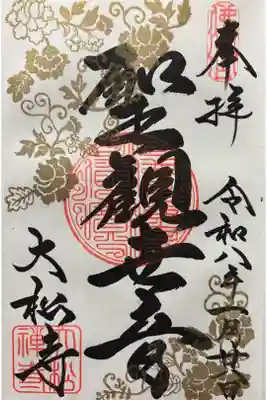 奉拝
令和八年一月廿日
聖観世音
大松寺